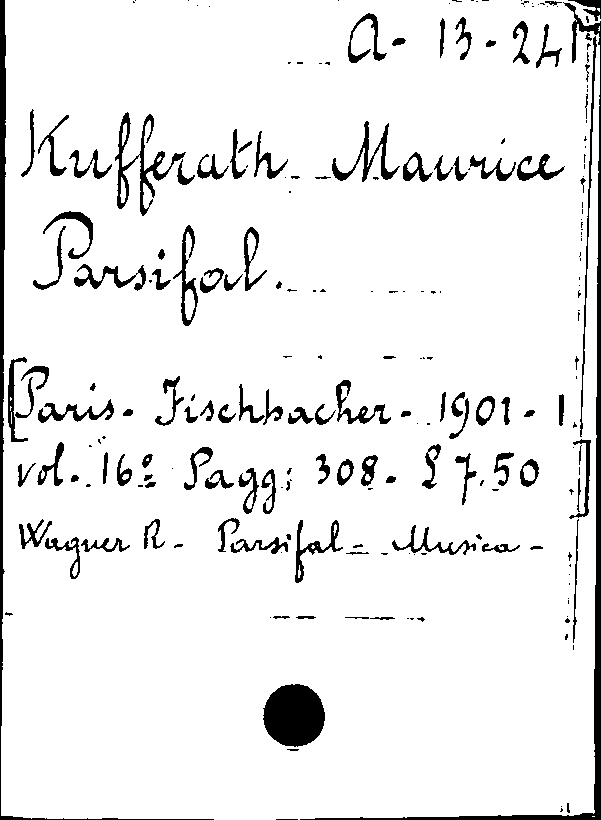 A- 13-241
Kufferath Maurice
Parsifal.
[Paris- Fischbacher- 1901- 1
vol. 16º Pagg: 308- £ 7.50]
Wagner R- Parsifal- Musica-